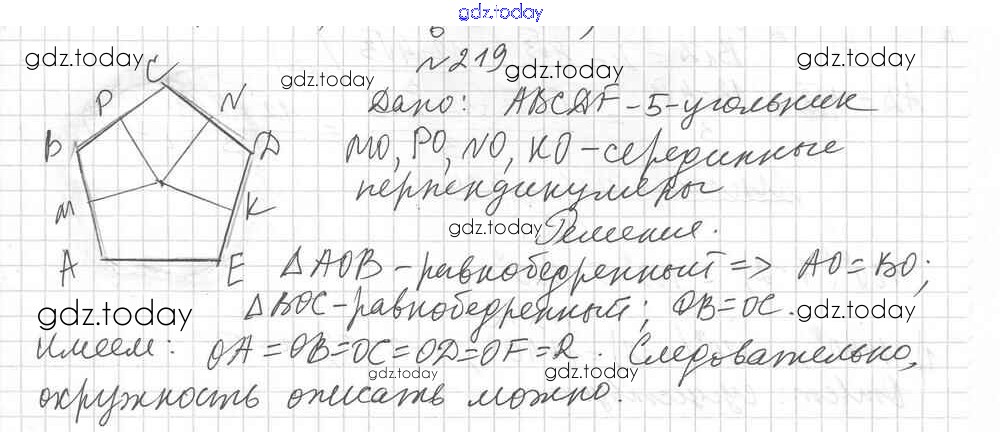 gdz.today
№219
gdz.today gdz.today gdz.today gdz.today
C
P N
Дано: ABCDF - 5-угольник
B D
MO, PO, NO, KO - серединные
перпендикуляры
M K
gdz.today Решение.
A E ΔAOB - равнобедренный => AO = BO;
gdz.today ΔBOC - равнобедренный; OB = OC. gdz.today
Имеем: OA = OB = OC = OD = OF = R. Следовательно,
gdz.today gdz.today
окружность описать можно.